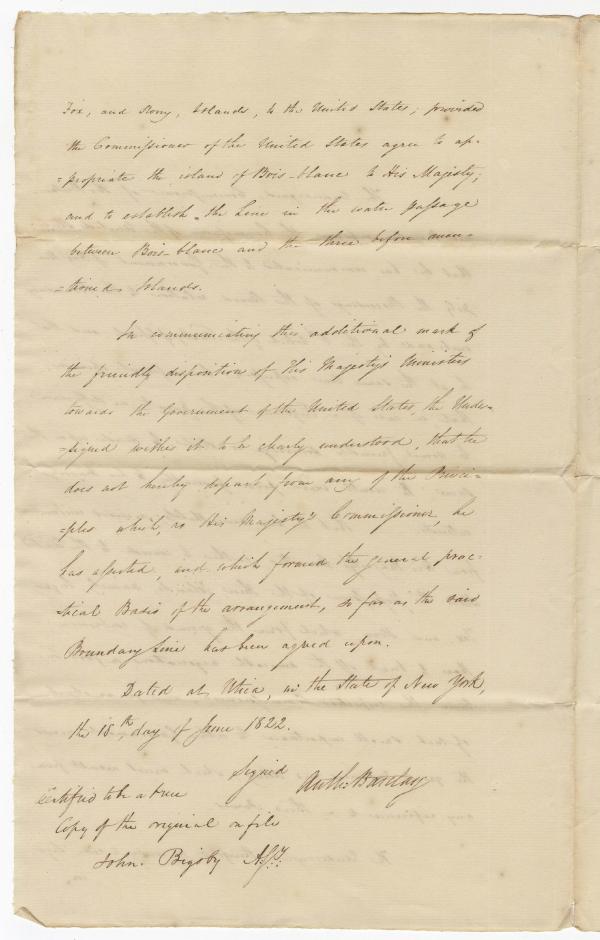 Fox, and Stony, Islands, to the United States; provided
the Commissioner of the United States agree to ap-
=propriate the island of Bois-blanc to His Majesty;
and to establish the Line in the water passage
between Bois-blanc and the three before men-
=tioned Islands.
In communicating this additional mark of
the friendly disposition of His Majesty's Ministers
towards the Government of the United States, the Under-
=signed wishes it to be clearly understood, that he
does not hereby depart from any of the Princi-
=ples which, as His Majesty's Commissioner, he
has asserted, and which formed the general prac-
=tical Basis of the arrangement, so far as the said
Boundary Line has been agreed upon.
Dated at Utica, in the State of New York,
the 18th, day of June 1822.
Signed
Anth: Barclay
Certified to be a true
Copy of the original on file
John. Bigsby Asst: